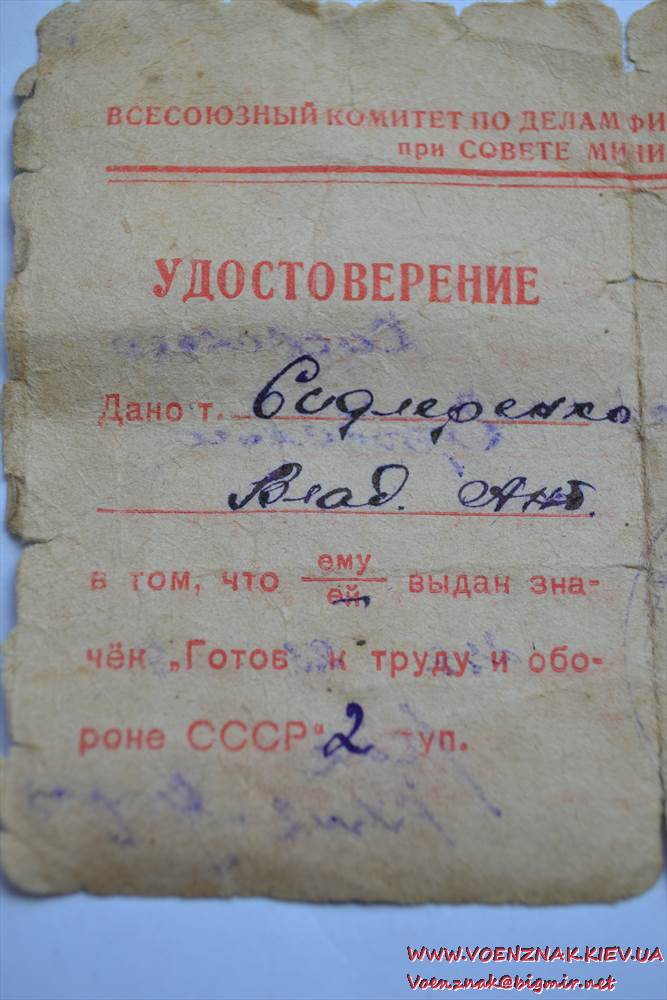 ВСЕСОЮЗНЫЙ КОМИТЕТ ПО ДЕЛАМ ФИ
при СОВЕТЕ МИНИ
УДОСТОВЕРЕНИЕ
Дано т.
Влад. Ант.
в том, что ему
ей выдан зна-
чёк „Готов к труду и обо-
роне СССР“ 2 туп.
WWW.VOENZNAK.KIEV.UA
Voenznak@bigmir.net